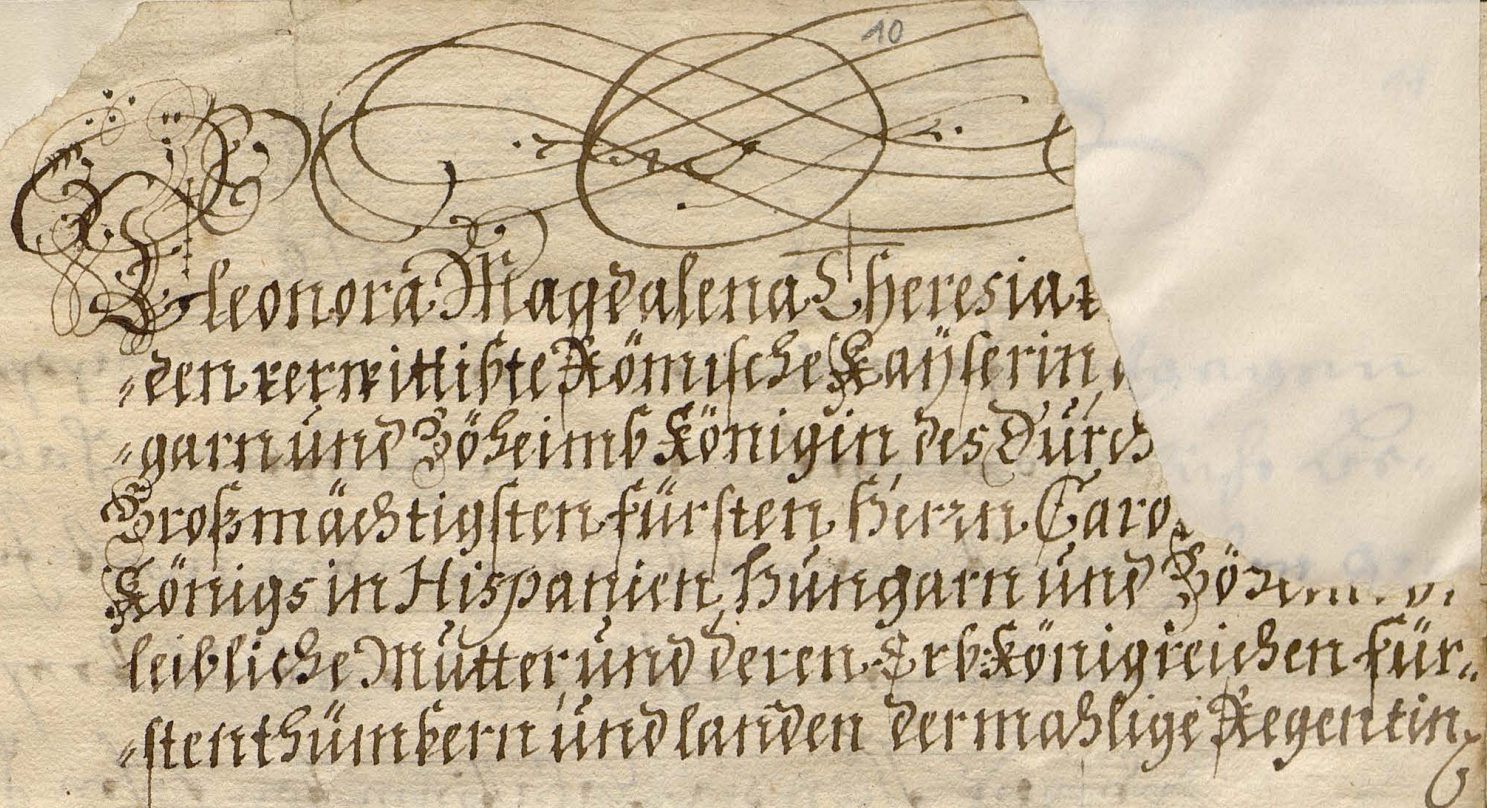 10
Eleonora Magdalena Theresia
„den verwittibte Römische Kaÿserin
„garn und Böheimb Königin des Durch
Großmächtigsten fürsten Herrn Caro
Königs in Hispanien, Hungarn und
leibliche Mutter, und deren Erb-Königreichen für„
„stenthümbern und landen dermahlige Regentin,